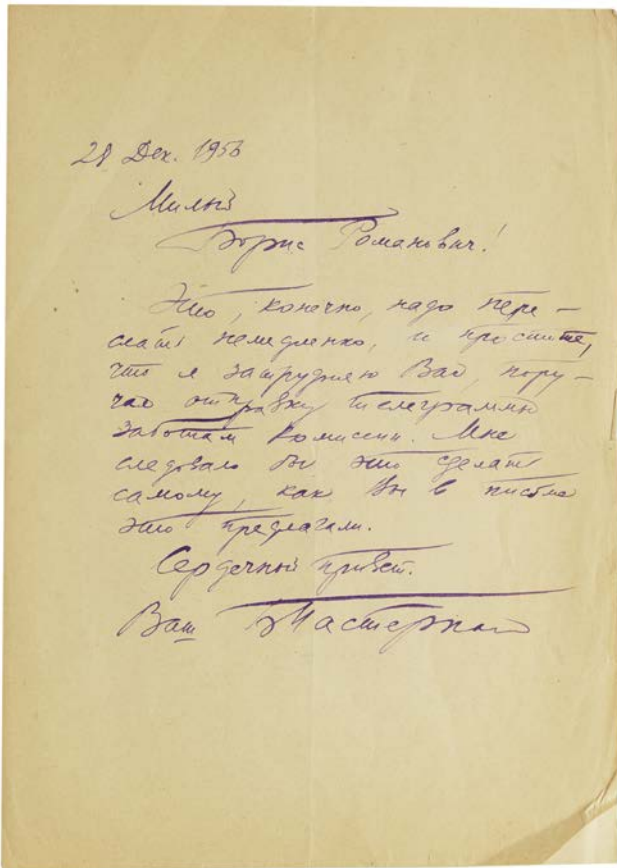 28 Дек. 1956
Милый
Борис Романович!
Это, конечно, надо пере-
слать немедленно, и простите,
что я затрудняю Вас, пору-
чаю отправку телеграммы
заботам Комиссии. Мне
следовало бы это сделать
самому, как Вы в письме
это предлагали.
Сердечный привет.
Ваш БПастернак